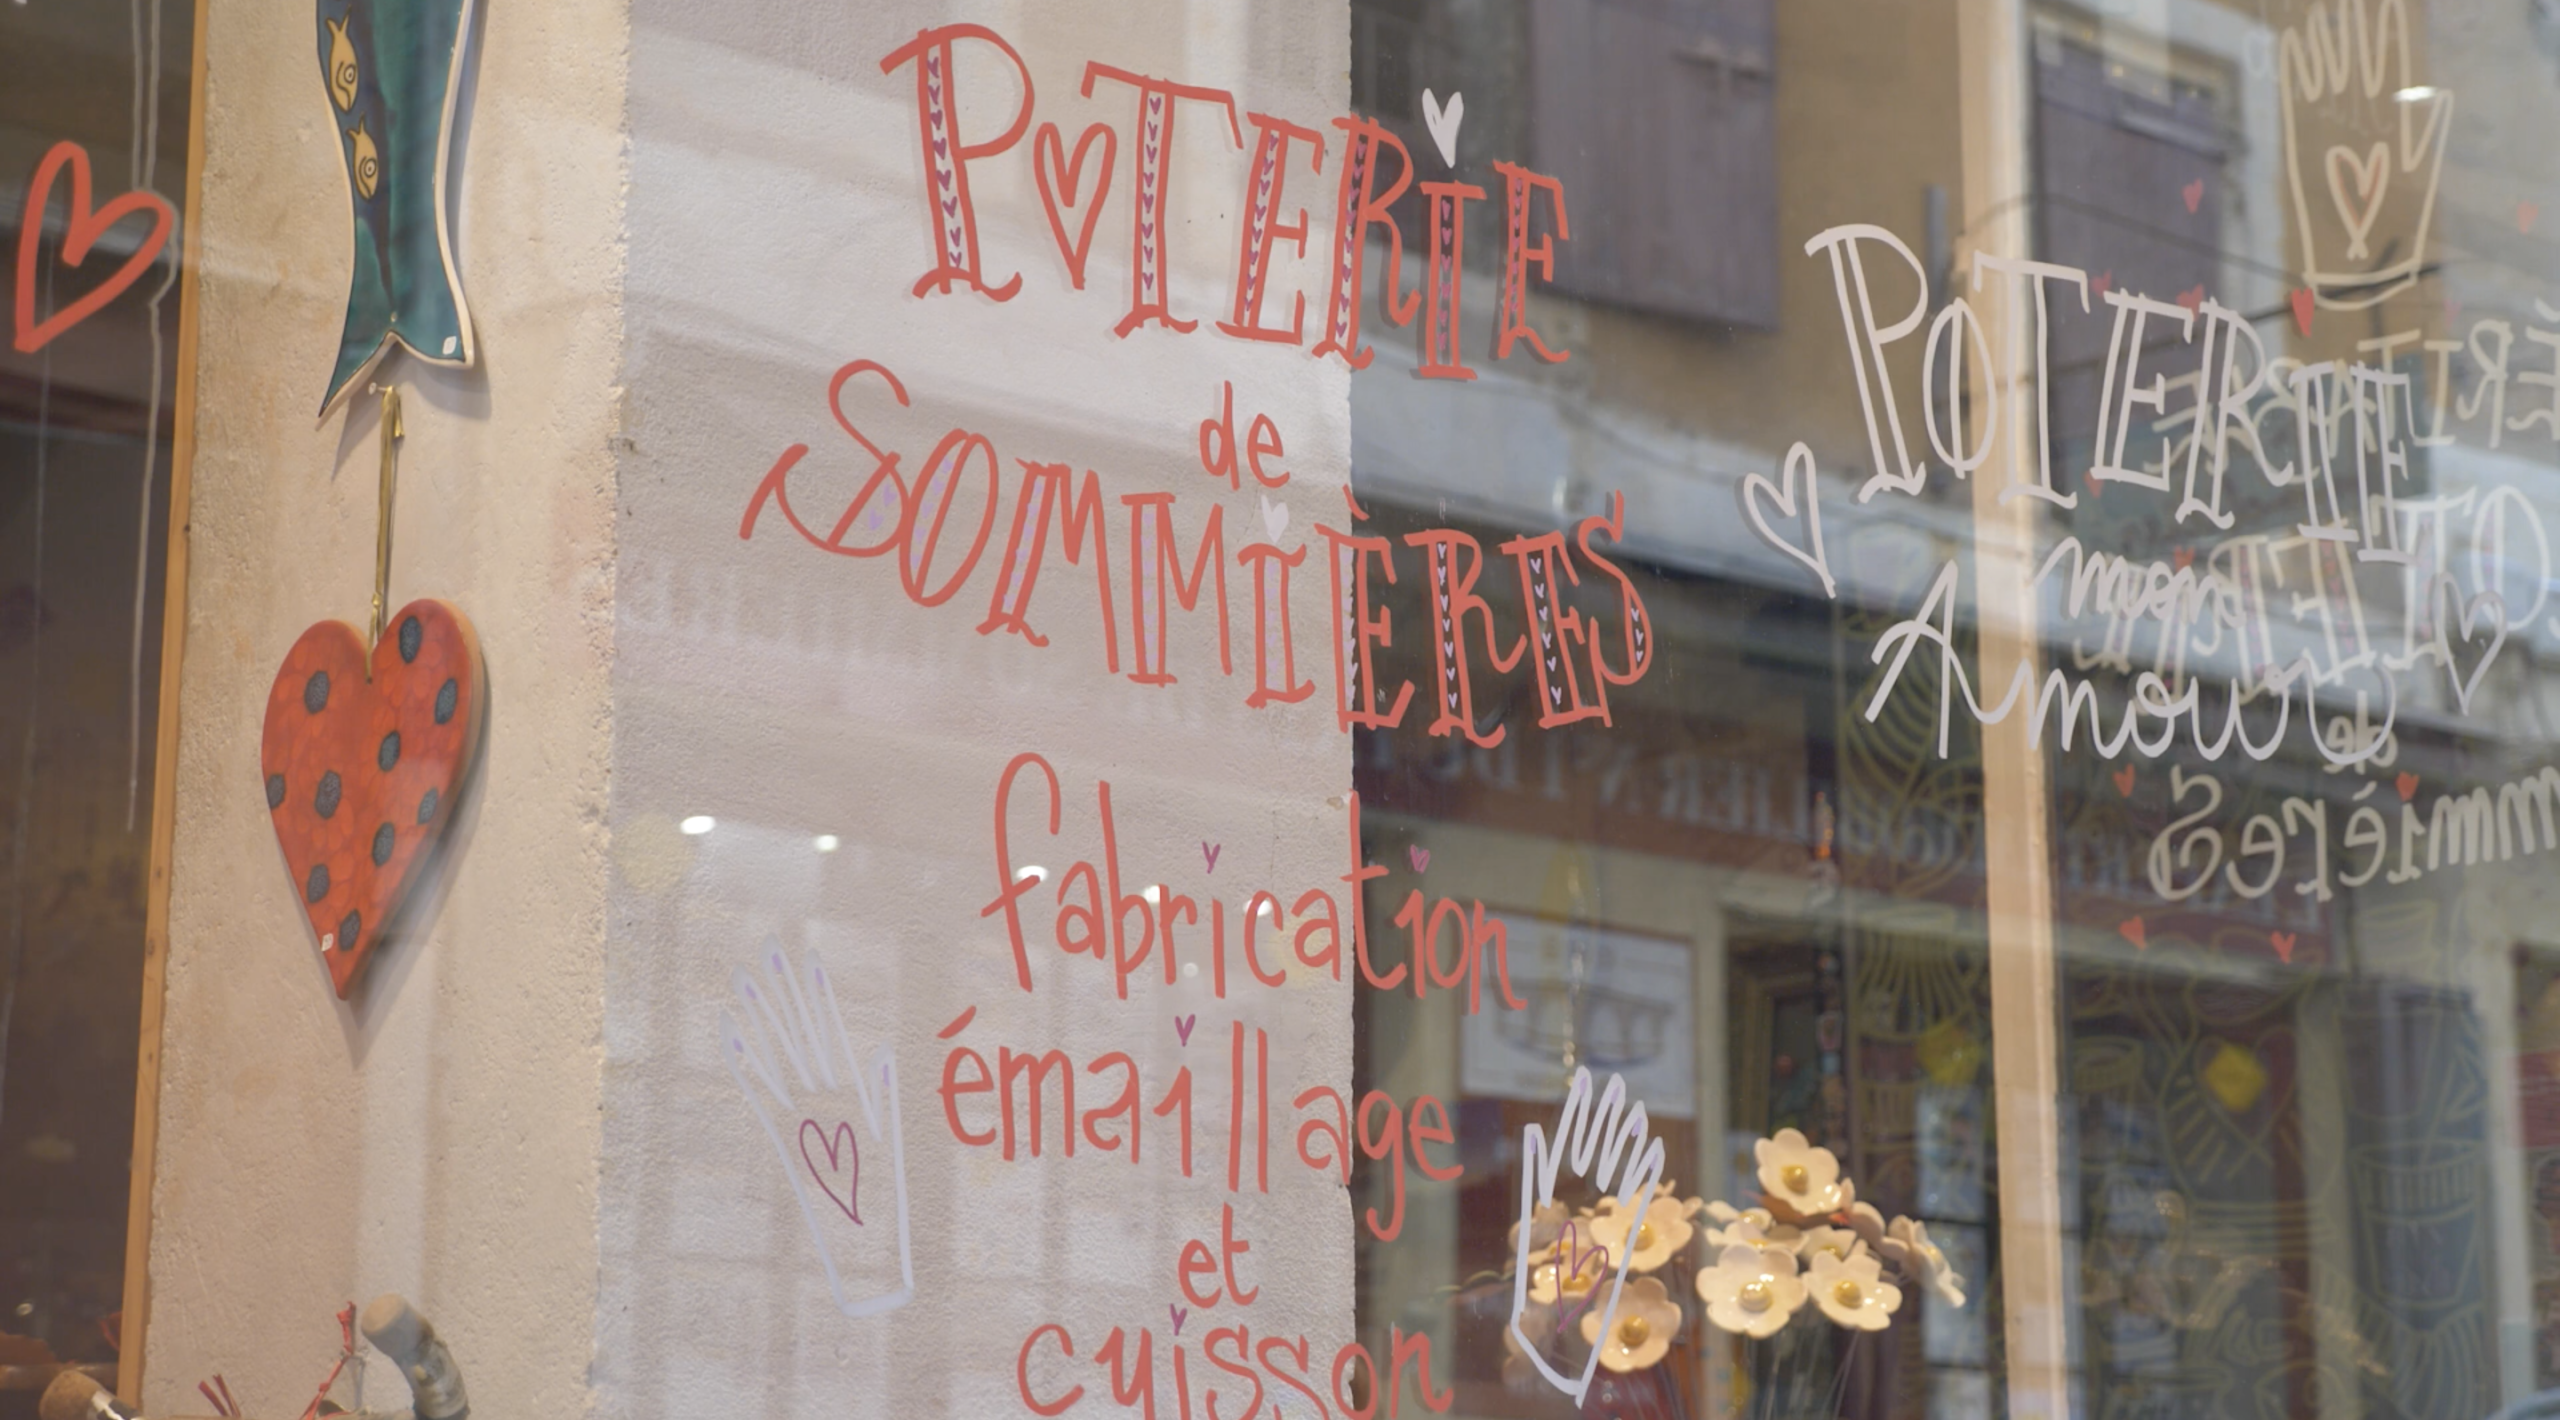 POTERIE
de
SOMMIÈRES
fabrication
émaillage
et
cuisson
POTERIE
mon
Amour
de
Sommières